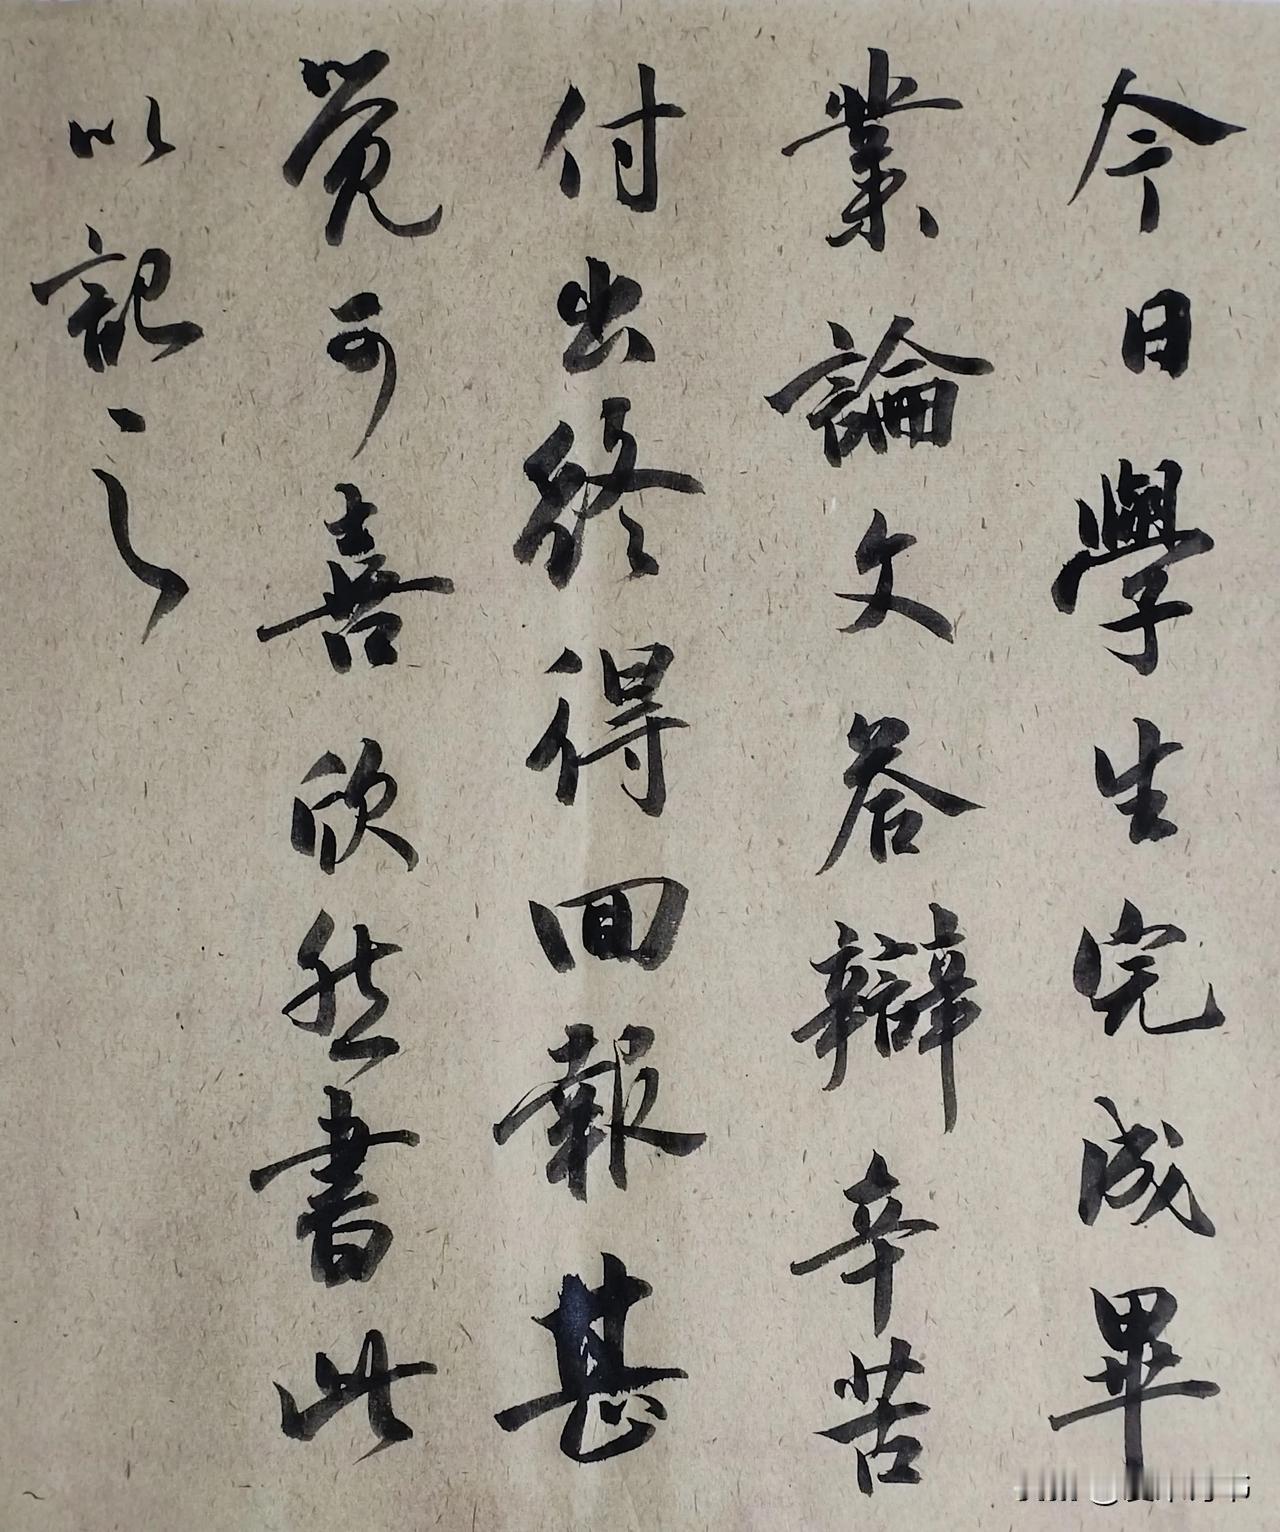 今日學生完成畢
業論文答辯辛苦
付出終得回報甚
覺可喜欣然書此
以記之